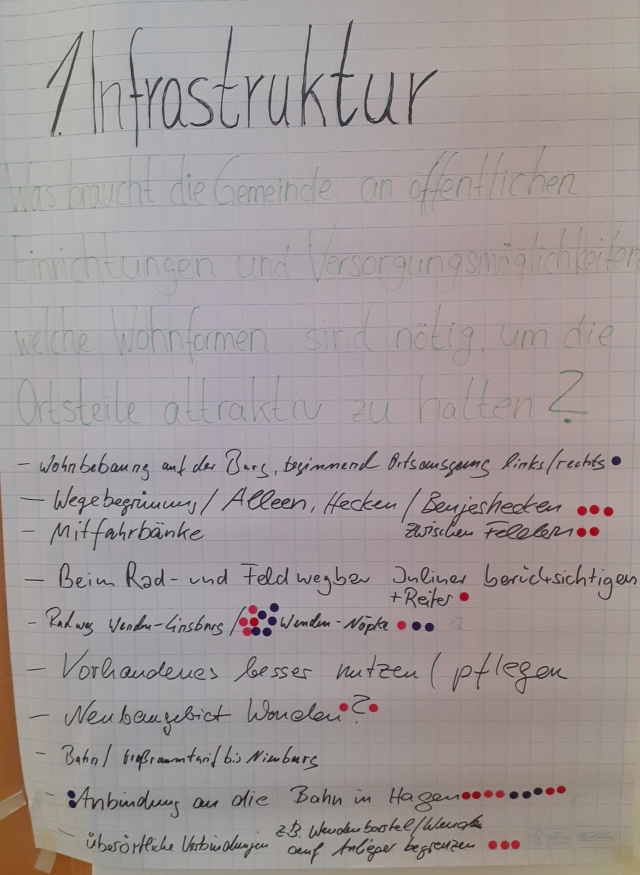 1. Infrastruktur
Was braucht die Gemeinde an öffentlichen
Einrichtungen und Versorgungsmöglichkeiten
welche Wohnformen sind nötig, um die
Ortsteile attraktiv zu halten?
- Wohnbebauung auf der Burg, beginnend Ortsausgang links/rechts
- Wegebegrünung / Alleen, Hecken / Benjeshecken
zwischen Feldern
- Mitfahrbänke
- Beim Rad- und Feldwegbau Inliner berücksichtigen
+ Reiter
- Radweg Wenden-Linsburg / Wenden-Nöpke
- Vorhandenes besser nutzen / pflegen
- Neubaugebiet Wenden?
- Bahn / Großraumtarif bis Nienburg
- Anbindung an die Bahn in Hagen
- überörtliche Verbindungen z.B. Wendenborstel/Wenden
auf Anlieger begrenzen